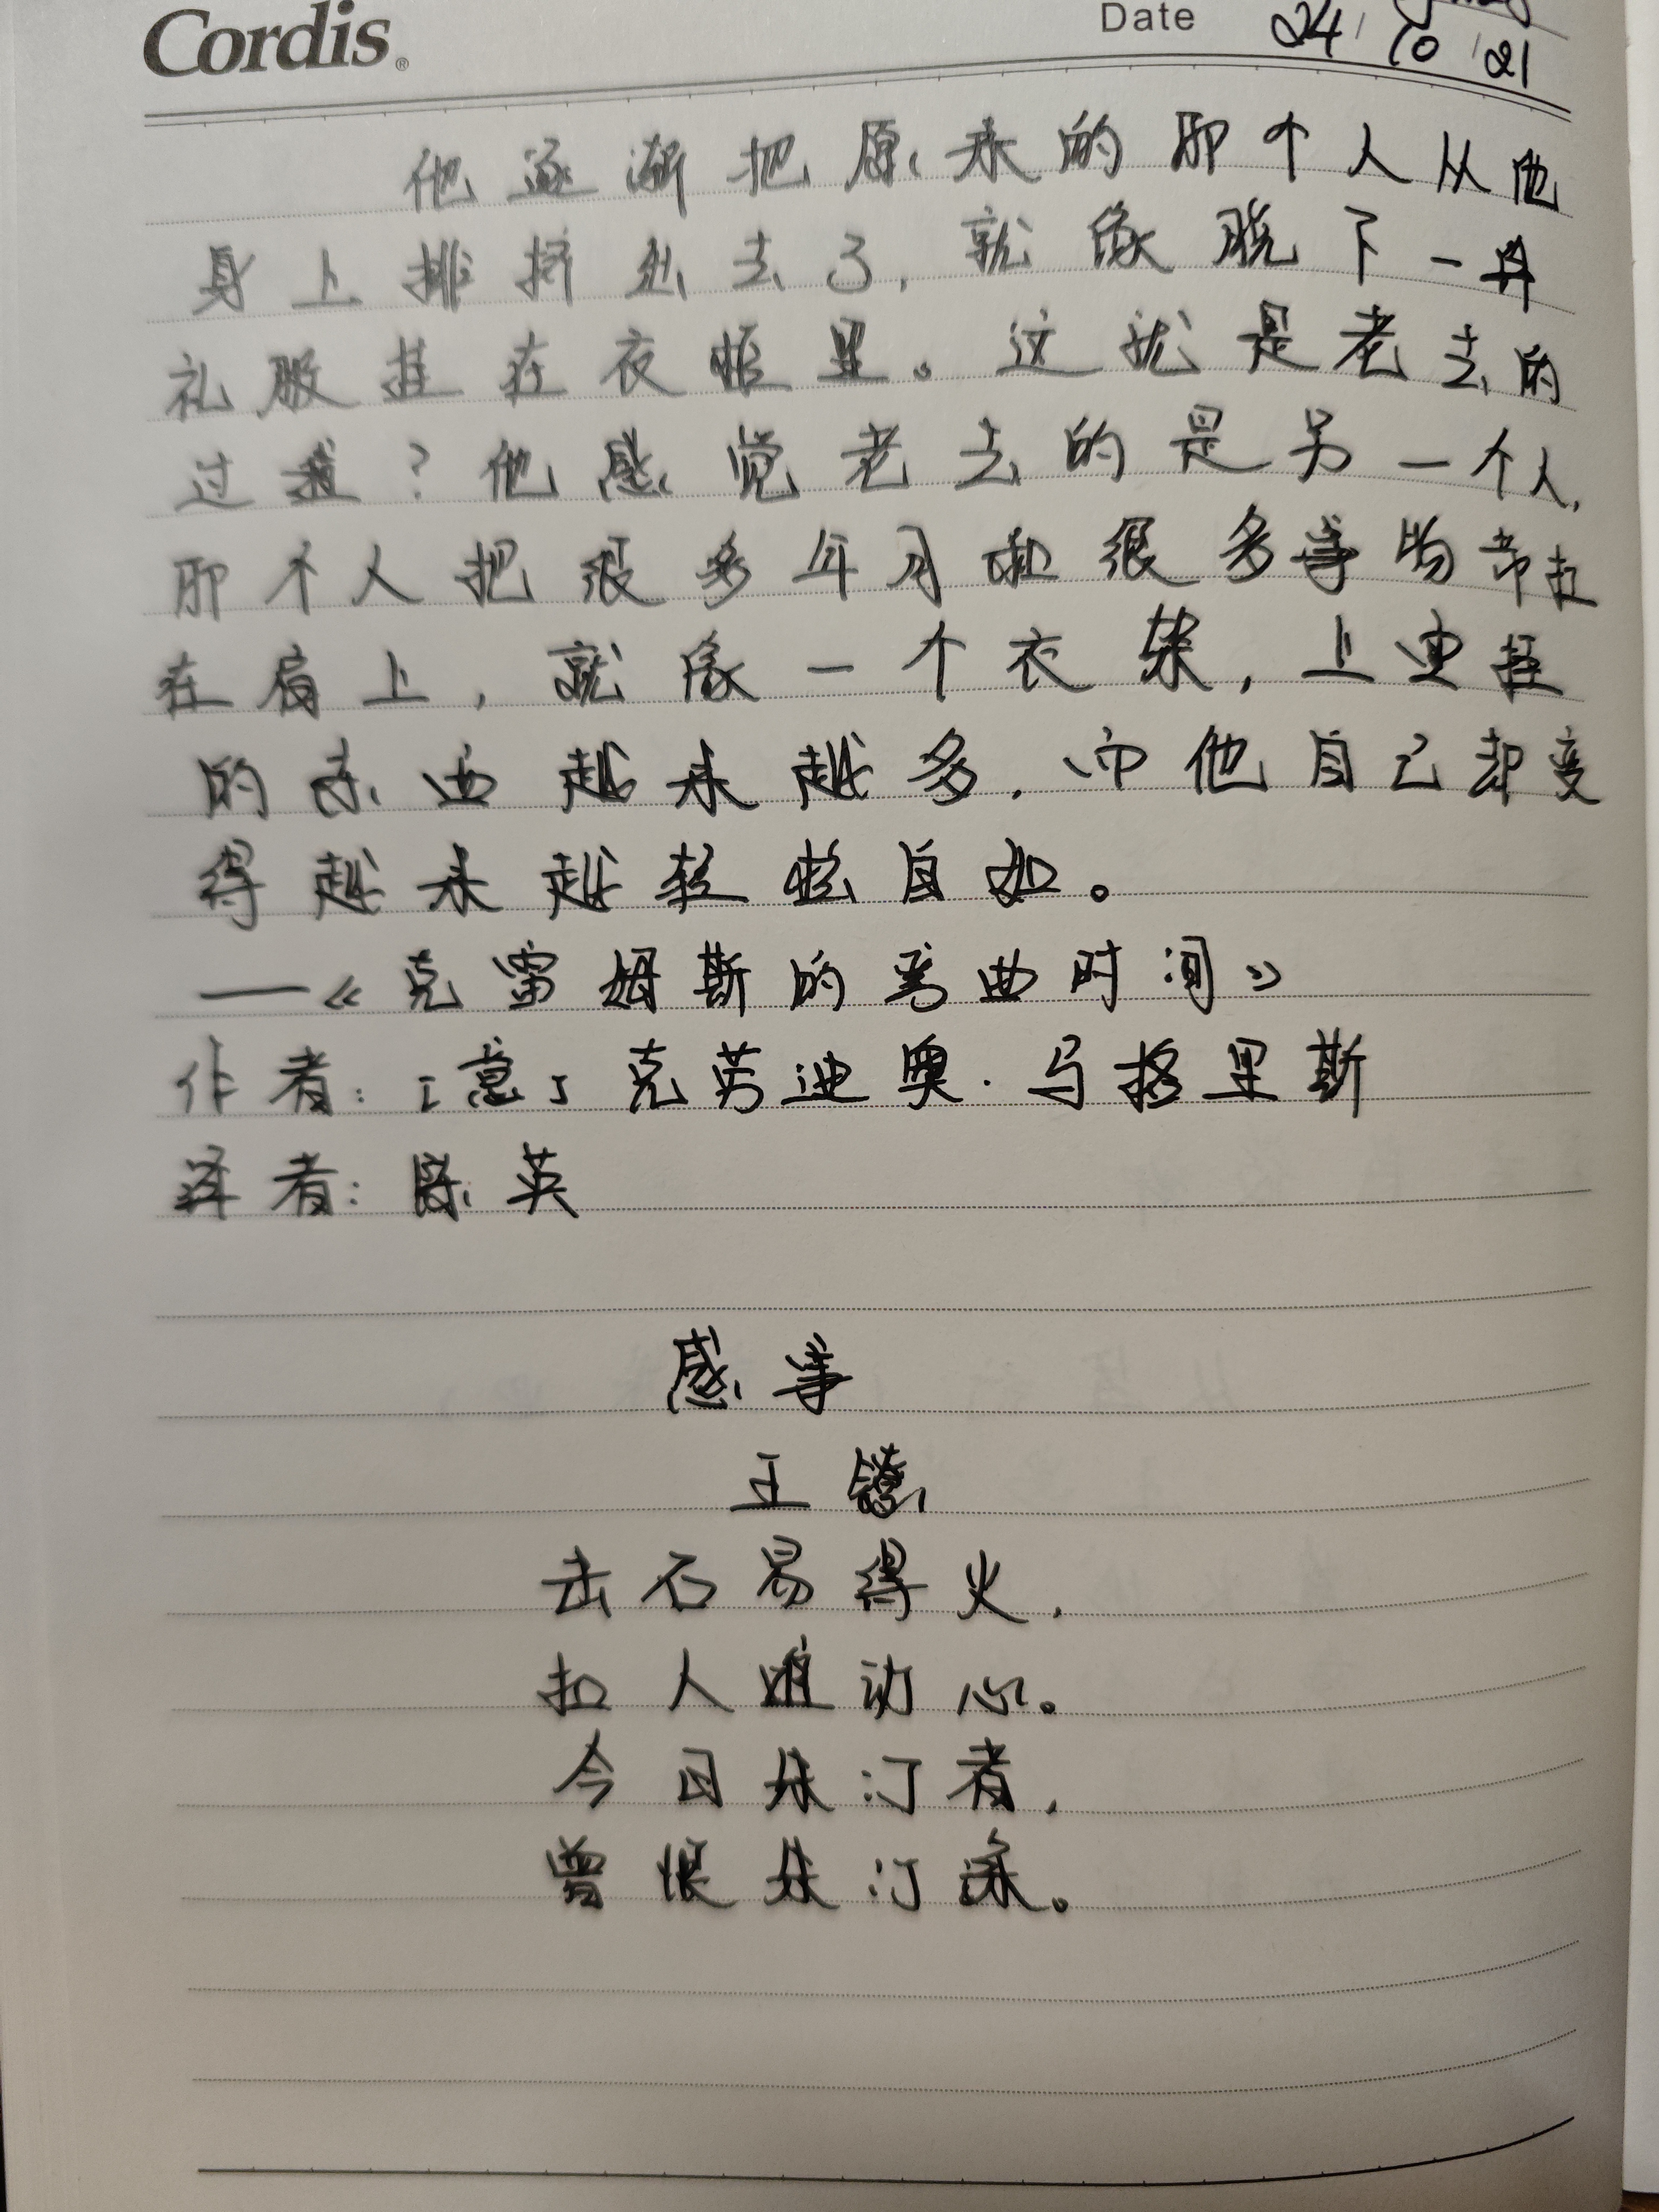 Cordis®
Date 24/10/21
他逐渐把原来的那个人从他
身上排挤出去了,就像脱下一件
礼服挂在衣柜里。这就是老去的
过程?他感觉老去的是另一个人,
那个人把很多年月和很多事物都扛
在肩上,就像一个衣架,上面挂
的东西越来越多,而他自己却变
得越来越轻松自如。
——《克雷姆斯的弯曲时间》
作者:[意]克劳迪奥·马格里斯
译者:陈英
感事
王镃
击石易得火,
扣人难动心。
今日朱门者,
曾恨朱门深。